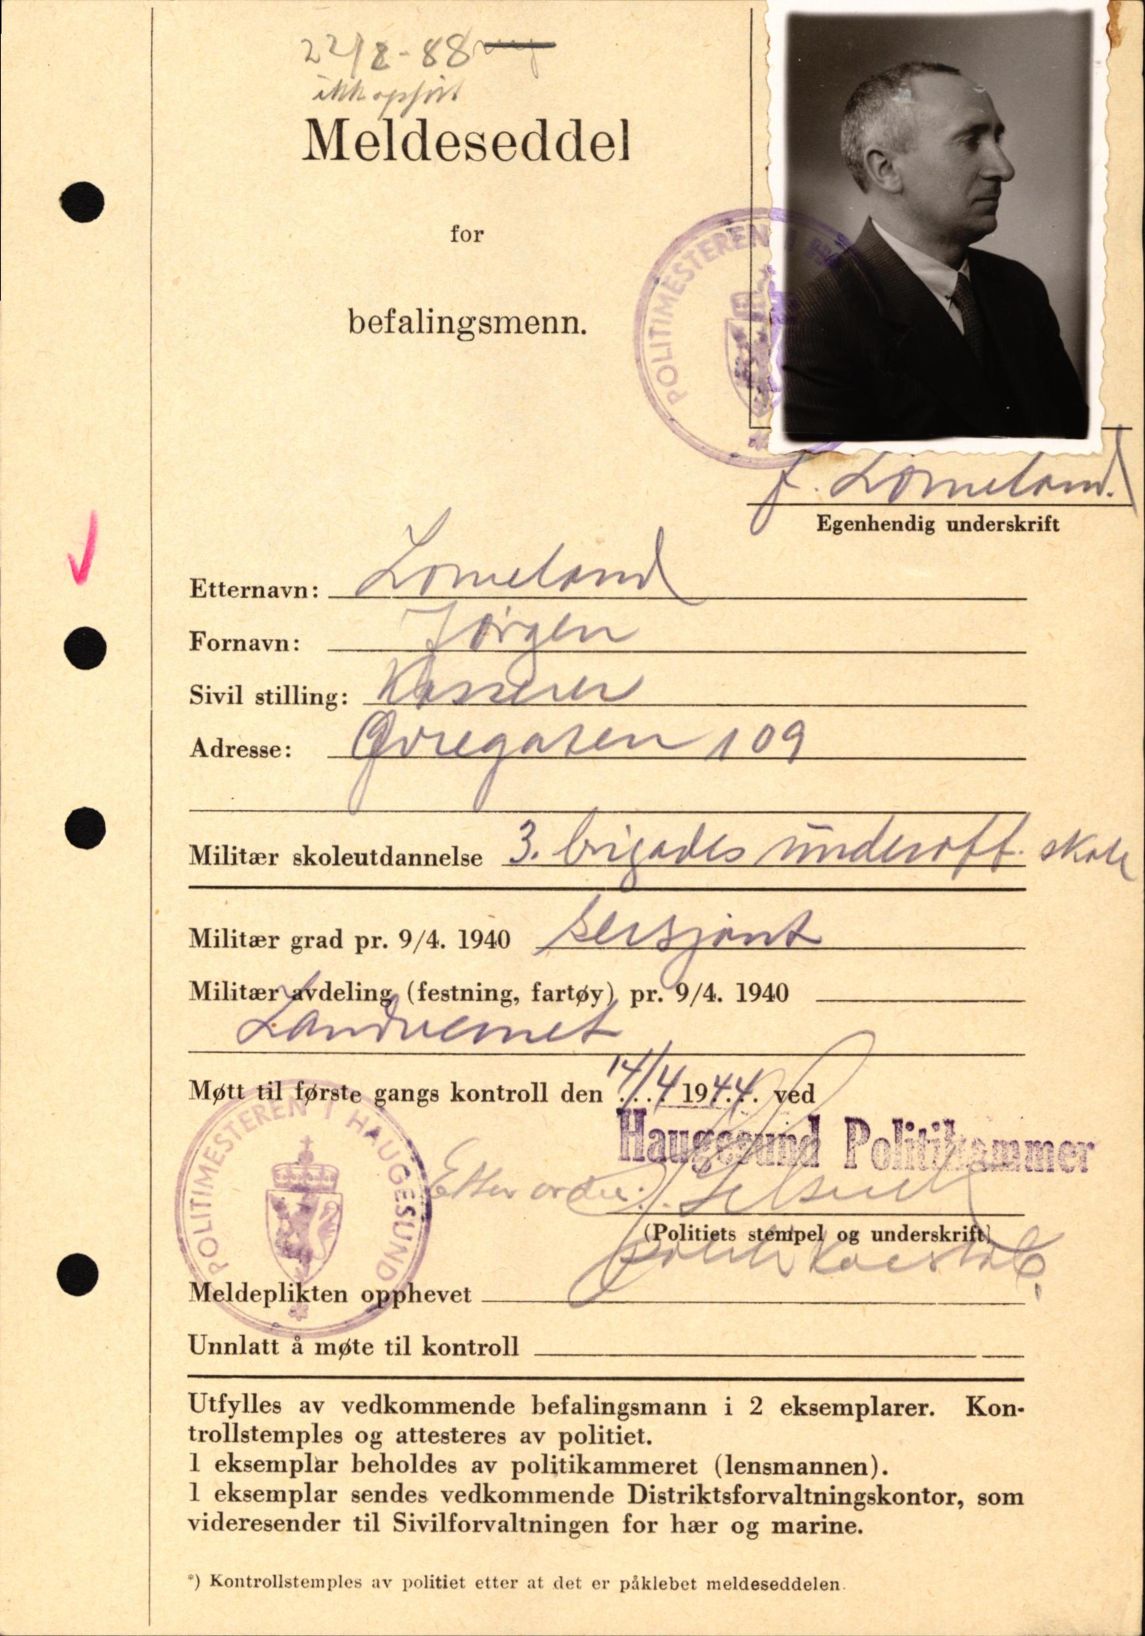 22/8-88
ikke opført
Meldeseddel
for
befalingsmenn.
POLITIMESTEREN I
J. Lomeland.
Egenhendig underskrift
Etternavn: Lomeland
Fornavn: Jørgen
Sivil stilling: Kasserer
Adresse: Øvregaten 109
Militær skoleutdannelse 3. brigades underoff. skole
Militær grad pr. 9/4. 1940 sersjant
Militær avdeling (festning, fartøy) pr. 9/4. 1940
Landvernet
Møtt til første gangs kontroll den 14/4 1944. ved
POLITIMESTEREN I HAUGESUND
Haugesund Politikammer
Etter ordre:
(Politiets stempel og underskrift)
Meldeplikten opphevet
Unnlatt å møte til kontroll
Utfylles av vedkommende befalingsmann i 2 eksemplarer. Kon-
trollstemples og attesteres av politiet.
1 eksemplar beholdes av politikammeret (lensmannen).
1 eksemplar sendes vedkommende Distriktsforvaltningskontor, som
videresender til Sivilforvaltningen for hær og marine.
*) Kontrollstemples av politiet etter at det er påklebet meldeseddelen.